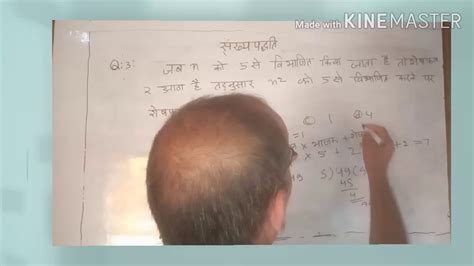 Made with KINEMASTER
संख्यपद्धति
Q: 3: जब n को 5 से विभाजित किया जाता है तो शेषफल
2 आता है तदनुसार n² को 5 से विभाजित करने पर
© 1 ⓓ 4
=1
× भाजक +
× 5 + 2 + 2 = 7
49 5)49(
45
4